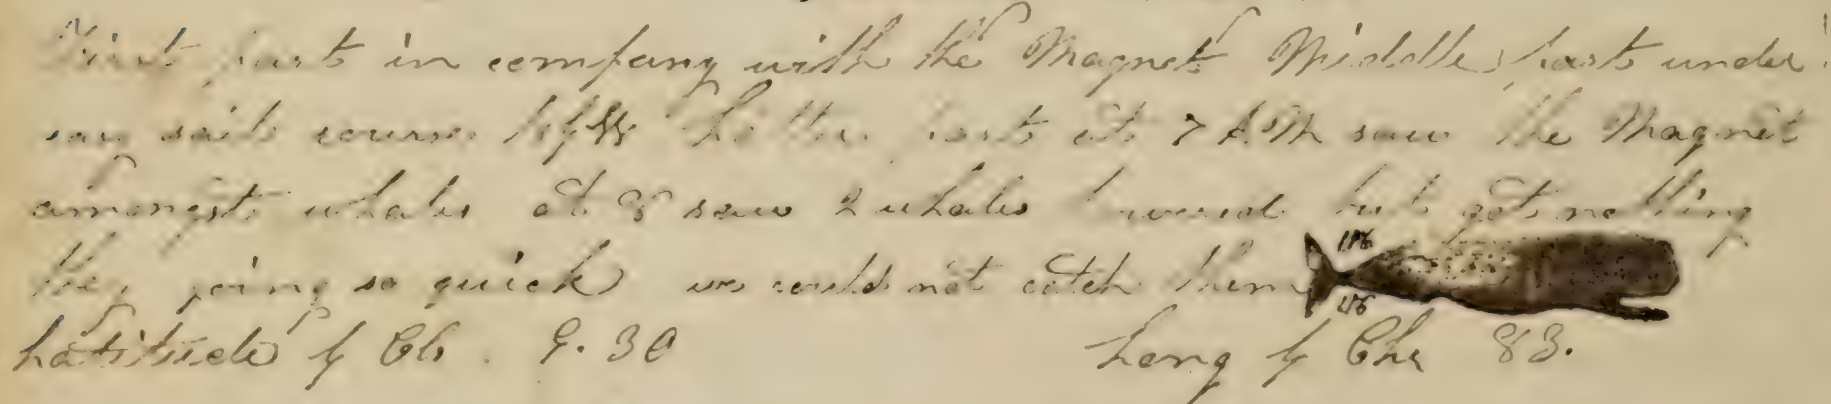 First part in company with the Magnet Middle part under
sail course Latter part at 7 AM saw the Magnet
amongst whales at 8 saw 2 whales lowered but got nothing
they going so quick we could not catch them
Latitude by Ob. 9.30 Long by Chr 83.